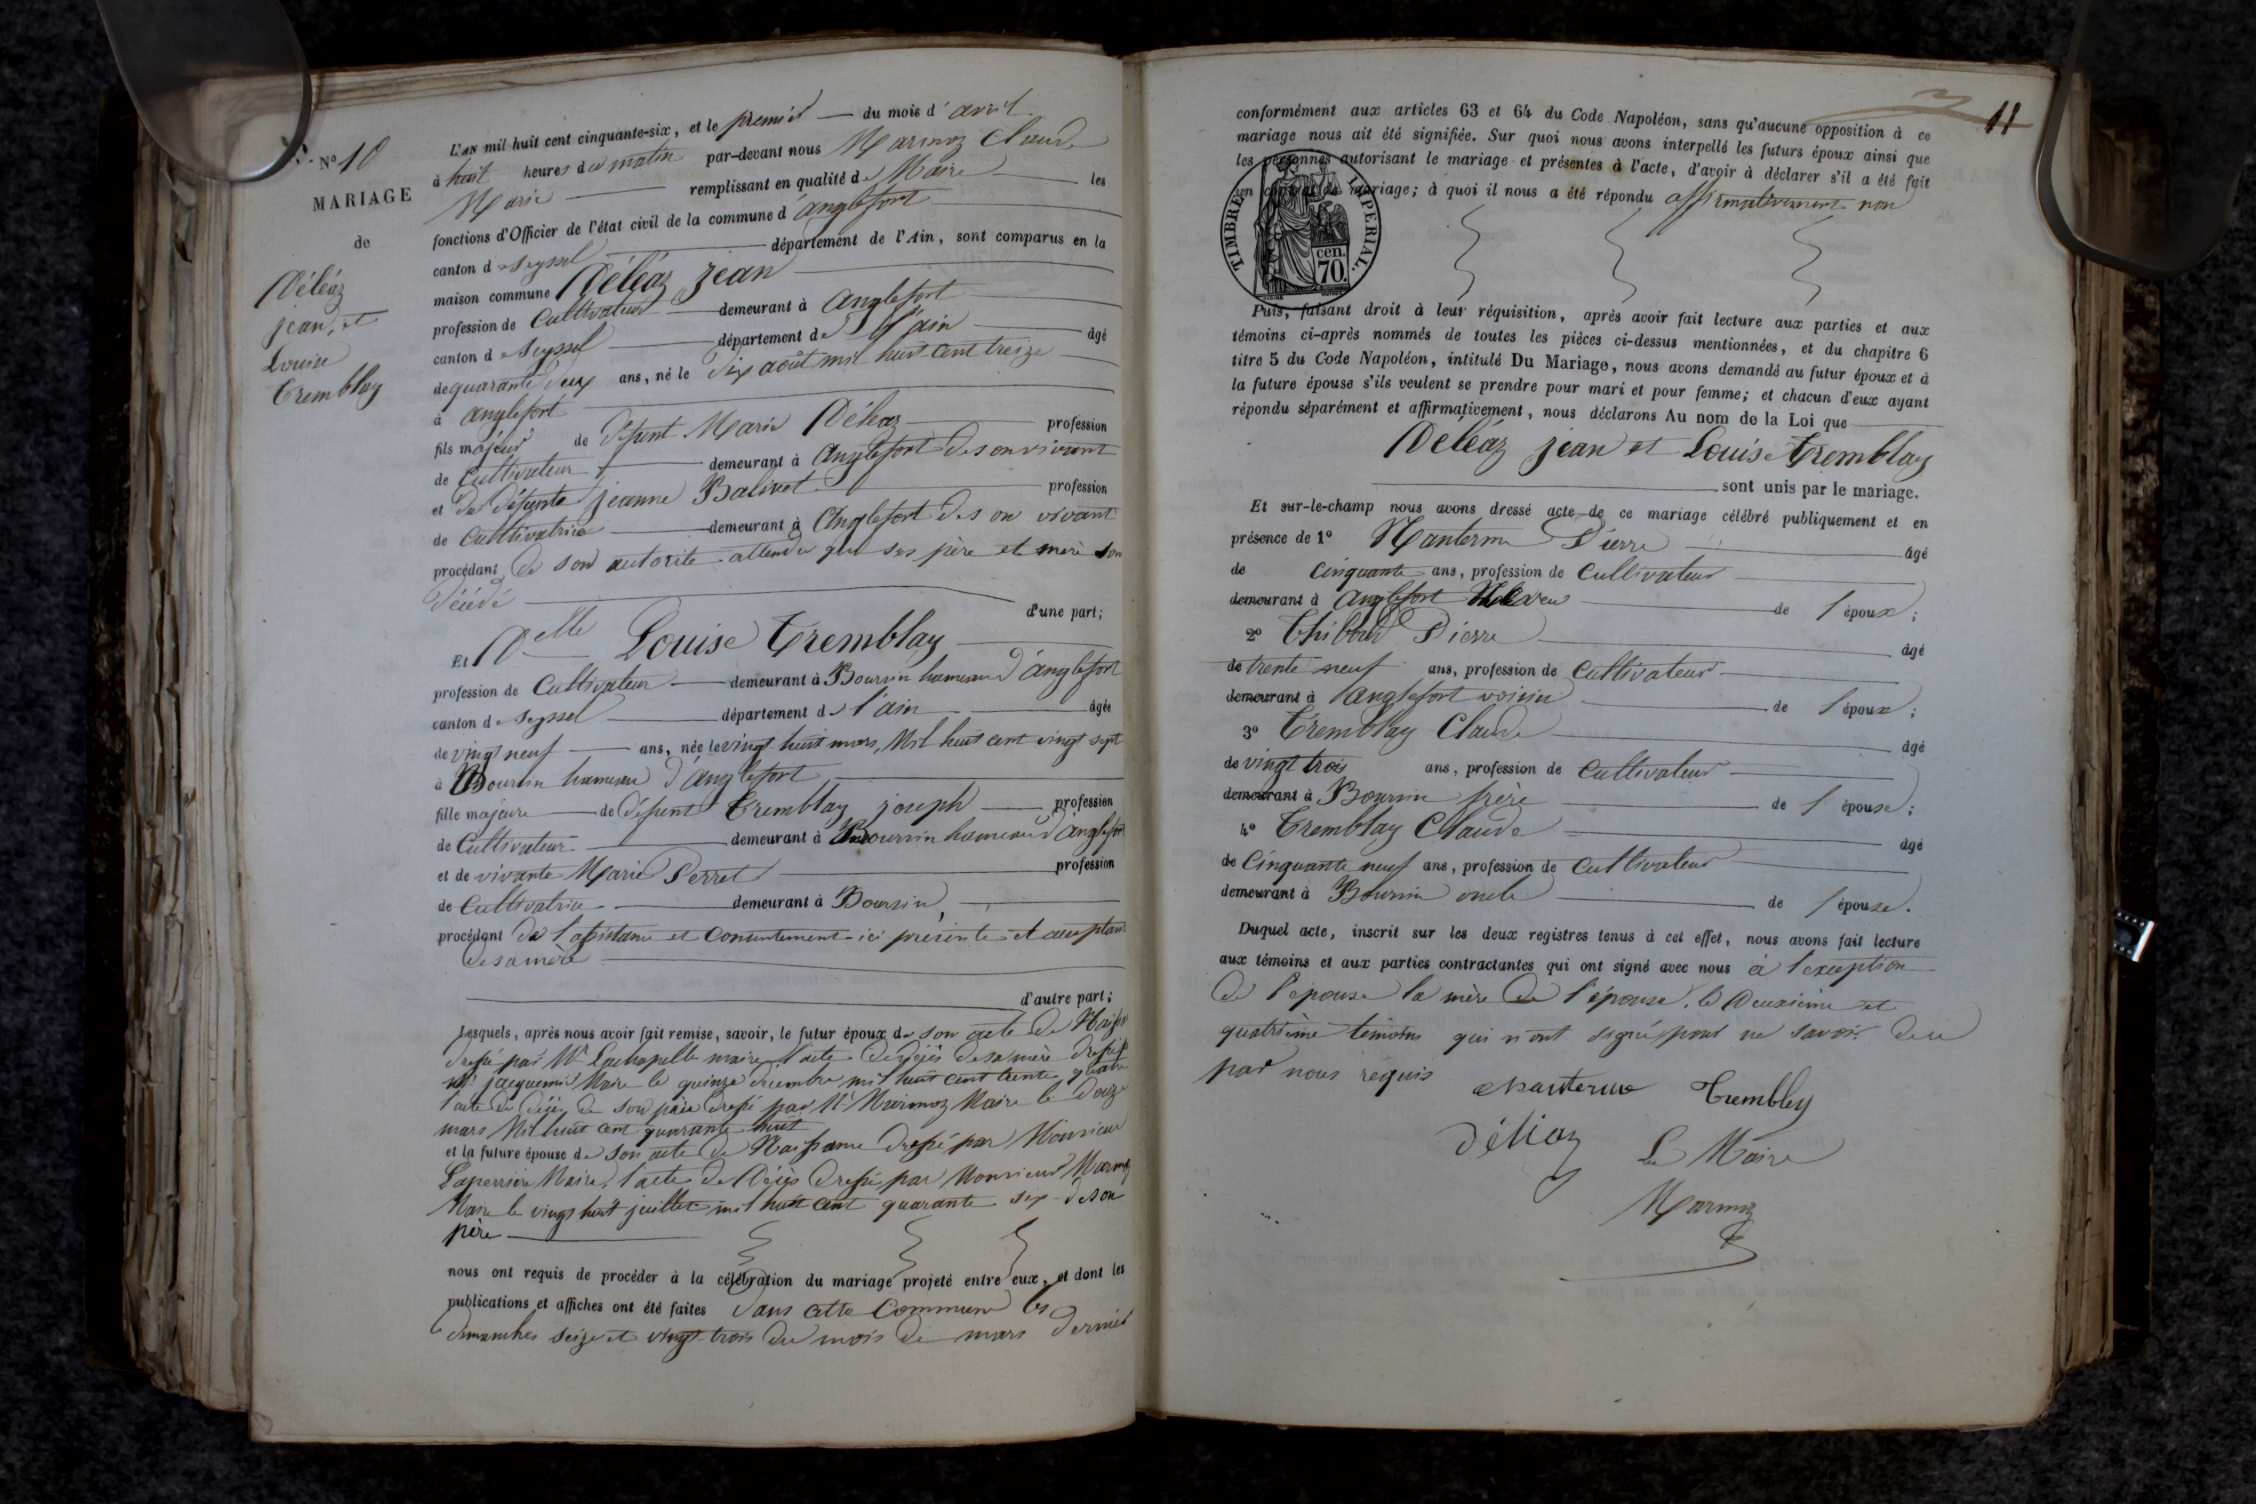 N° 10
MARIAGE
de
Déléaz
jean, et
Louise
Tremblay
L'AN mil huit cent cinquante-six, et le premier du mois d'avril
à huit heures du matin par-devant nous Marmoz Claude
Marie remplissant en qualité de Maire les
fonctions d'Officier de l'état civil de la commune d'anglefort
canton de Seyssel département de l'Ain, sont comparus en la
maison commune Déléaz Jean
profession de Cultivateur demeurant à Anglefort
canton de Seyssel département de l'ain âgé
de quarante deux ans, né le dix août mil huit cent treize
à anglefort
fils majeur de défunt Marie Déléaz profession
de Cultivateur demeurant à Anglefort de son vivant
et de défunte jeanne Balivet profession
de Cultivatrice demeurant à Anglefort de son vivant
procédant de son autorité attendu que ses père et mère son
décédé
d'une part;
Et Delle Louise Tremblay
profession de Cultivateur demeurant à Boursin hameau d'anglefort
canton de Seyssel département de l'ain âgée
de vingt neuf ans, née le vingt huit mars, Mil huit cent vingt sept
à Boursin hameau d'anglefort
fille majeure de défunt Tremblay joseph profession
de Cultivateur demeurant à Boursin hameau d'anglefort
et de vivante Marie Perret profession
de Cultivatrice demeurant à Boursin,
procédant de l'assistance et consentement ici présente et acceptant
de sa mère
d'autre part;
Lesquels, après nous avoir fait remise, savoir, le futur époux de son acte de Naiss
dressé par Mr Lachapelle maire, l'acte de décès de sa mère dressé p
Mr jacquemier Maire le quinze décembre mil huit cent trente quatre
l'acte de décès de son père dressé par Mr Marmoz Maire le douze
mars Mil huit cent quarante huit
et la future épouse de son acte de Naissance dressé par Monsieur
Laperrière Maire, l'acte de Décès dressé par Monsieur Marmoz
Maire le vingt huit juillet mil huit cent quarante six de son
père
nous ont requis de procéder à la célébration du mariage projeté entre eux, et dont les
publications et affiches ont été faites dans cette Commune les
dimanches seize et vingt-trois du mois de mars dernier
11
conformément aux articles 63 et 64 du Code Napoléon, sans qu'aucune opposition à ce
mariage nous ait été signifiée. Sur quoi nous avons interpellé les futurs époux ainsi que
les personnes autorisant le mariage et présentes à l'acte, d'avoir à déclarer s'il a été fait
un contrat de mariage; à quoi il nous a été répondu affirmativement non
TIMBRE IMPERIAL.
70 cen.
Puis, faisant droit à leur réquisition, après avoir fait lecture aux parties et aux
témoins ci-après nommés de toutes les pièces ci-dessus mentionnées, et du chapitre 6
titre 5 du Code Napoléon, intitulé Du Mariage, nous avons demandé au futur époux et à
la future épouse s'ils veulent se prendre pour mari et pour femme; et chacun d'eux ayant
répondu séparément et affirmativement, nous déclarons Au nom de la Loi que
Déléaz jean et Louise Tremblay
sont unis par le mariage.
Et sur-le-champ nous avons dressé acte de ce mariage célébré publiquement et en
présence de 1° Manterne Pierre âgé
de Cinquante ans, profession de Cultivateur
demeurant à Anglefort Neveu de l'époux;
2° Thiboud Pierre âgé
de trente neuf ans, profession de Cultivateur
demeurant à anglefort voisin de l'époux;
3° Tremblay Claude âgé
de vingt trois ans, profession de Cultivateur
demeurant à Boursin frère de l'épouse;
4° Tremblay Claude âgé
de Cinquante neuf ans, profession de Cultivateur
demeurant à Boursin oncle de l'épouse.
Duquel acte, inscrit sur les deux registres tenus à cet effet, nous avons fait lecture
aux témoins et aux parties contractantes qui ont signé avec nous à l'exception
de l'épouse la mère de l'épouse, le deuxième et
quatrième témoins qui n'ont signé pour ne savoir de ce
par nous requis
Manterne Tremblay
déléaz Le Maire
Marmoz